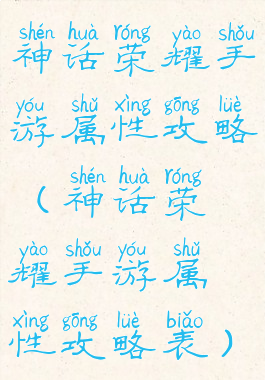 shén huà róng yào shǒu
神话荣耀手
yóu shǔ xìng gōng lüè
游属性攻略
shén huà róng
(神话荣
yào shǒu yóu shǔ
耀手游属
xìng gōng lüè biǎo
性攻略表)